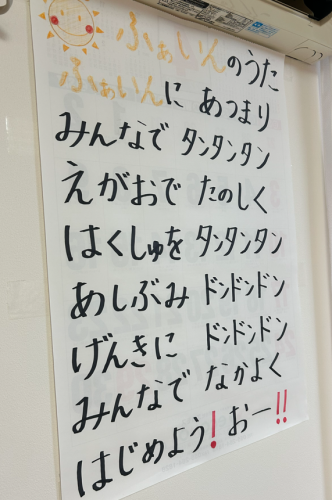 ふぁいんのうた
ふぁいんに あつまり
みんなで タンタンタン
えがおで たのしく
はくしゅを タンタンタン
あしぶみ ドンドンドン
げんきに ドンドンドン
みんなで なかよく
はじめよう! おー!!